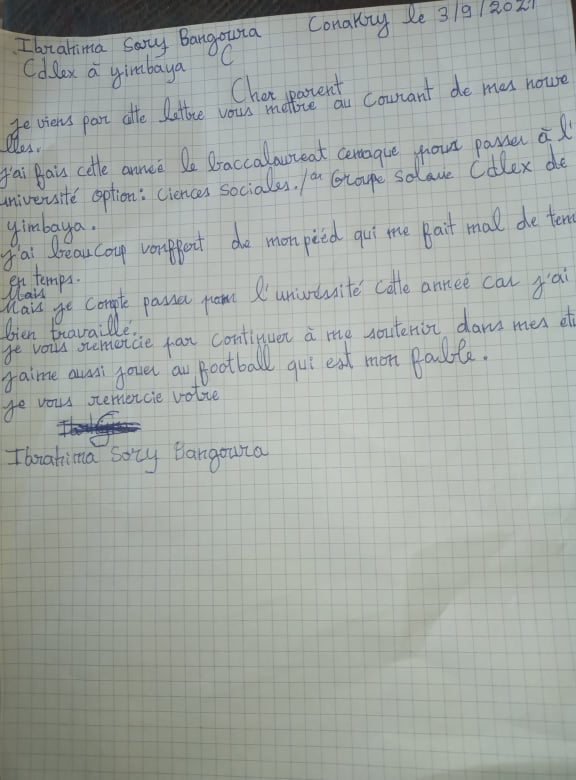 Ibrahima Sory Bangoura Conakry le 3/9/2021
Cdlex à yimbaya C
Cher parent
je viens par cette lettre vous mettre au courant de mes nouve
lles.
j'ai fais cette anneé le baccalaureat pour passer à l'
université option: ciences sociales. Groupe Solaire Cdlex de
yimbaya.
j'ai beaucoup de mon pièd qui me fait mal de tem
en temps.
Mais
Mais je compte passer pour l'université cette anneé car j'ai
bien travaillé.
je vous remercie par continuer à me soutenir dans mes étu
j'aime aussi jouer au football qui est mon faible.
je vous remercie votre
Ibrahima Sory Bangoura